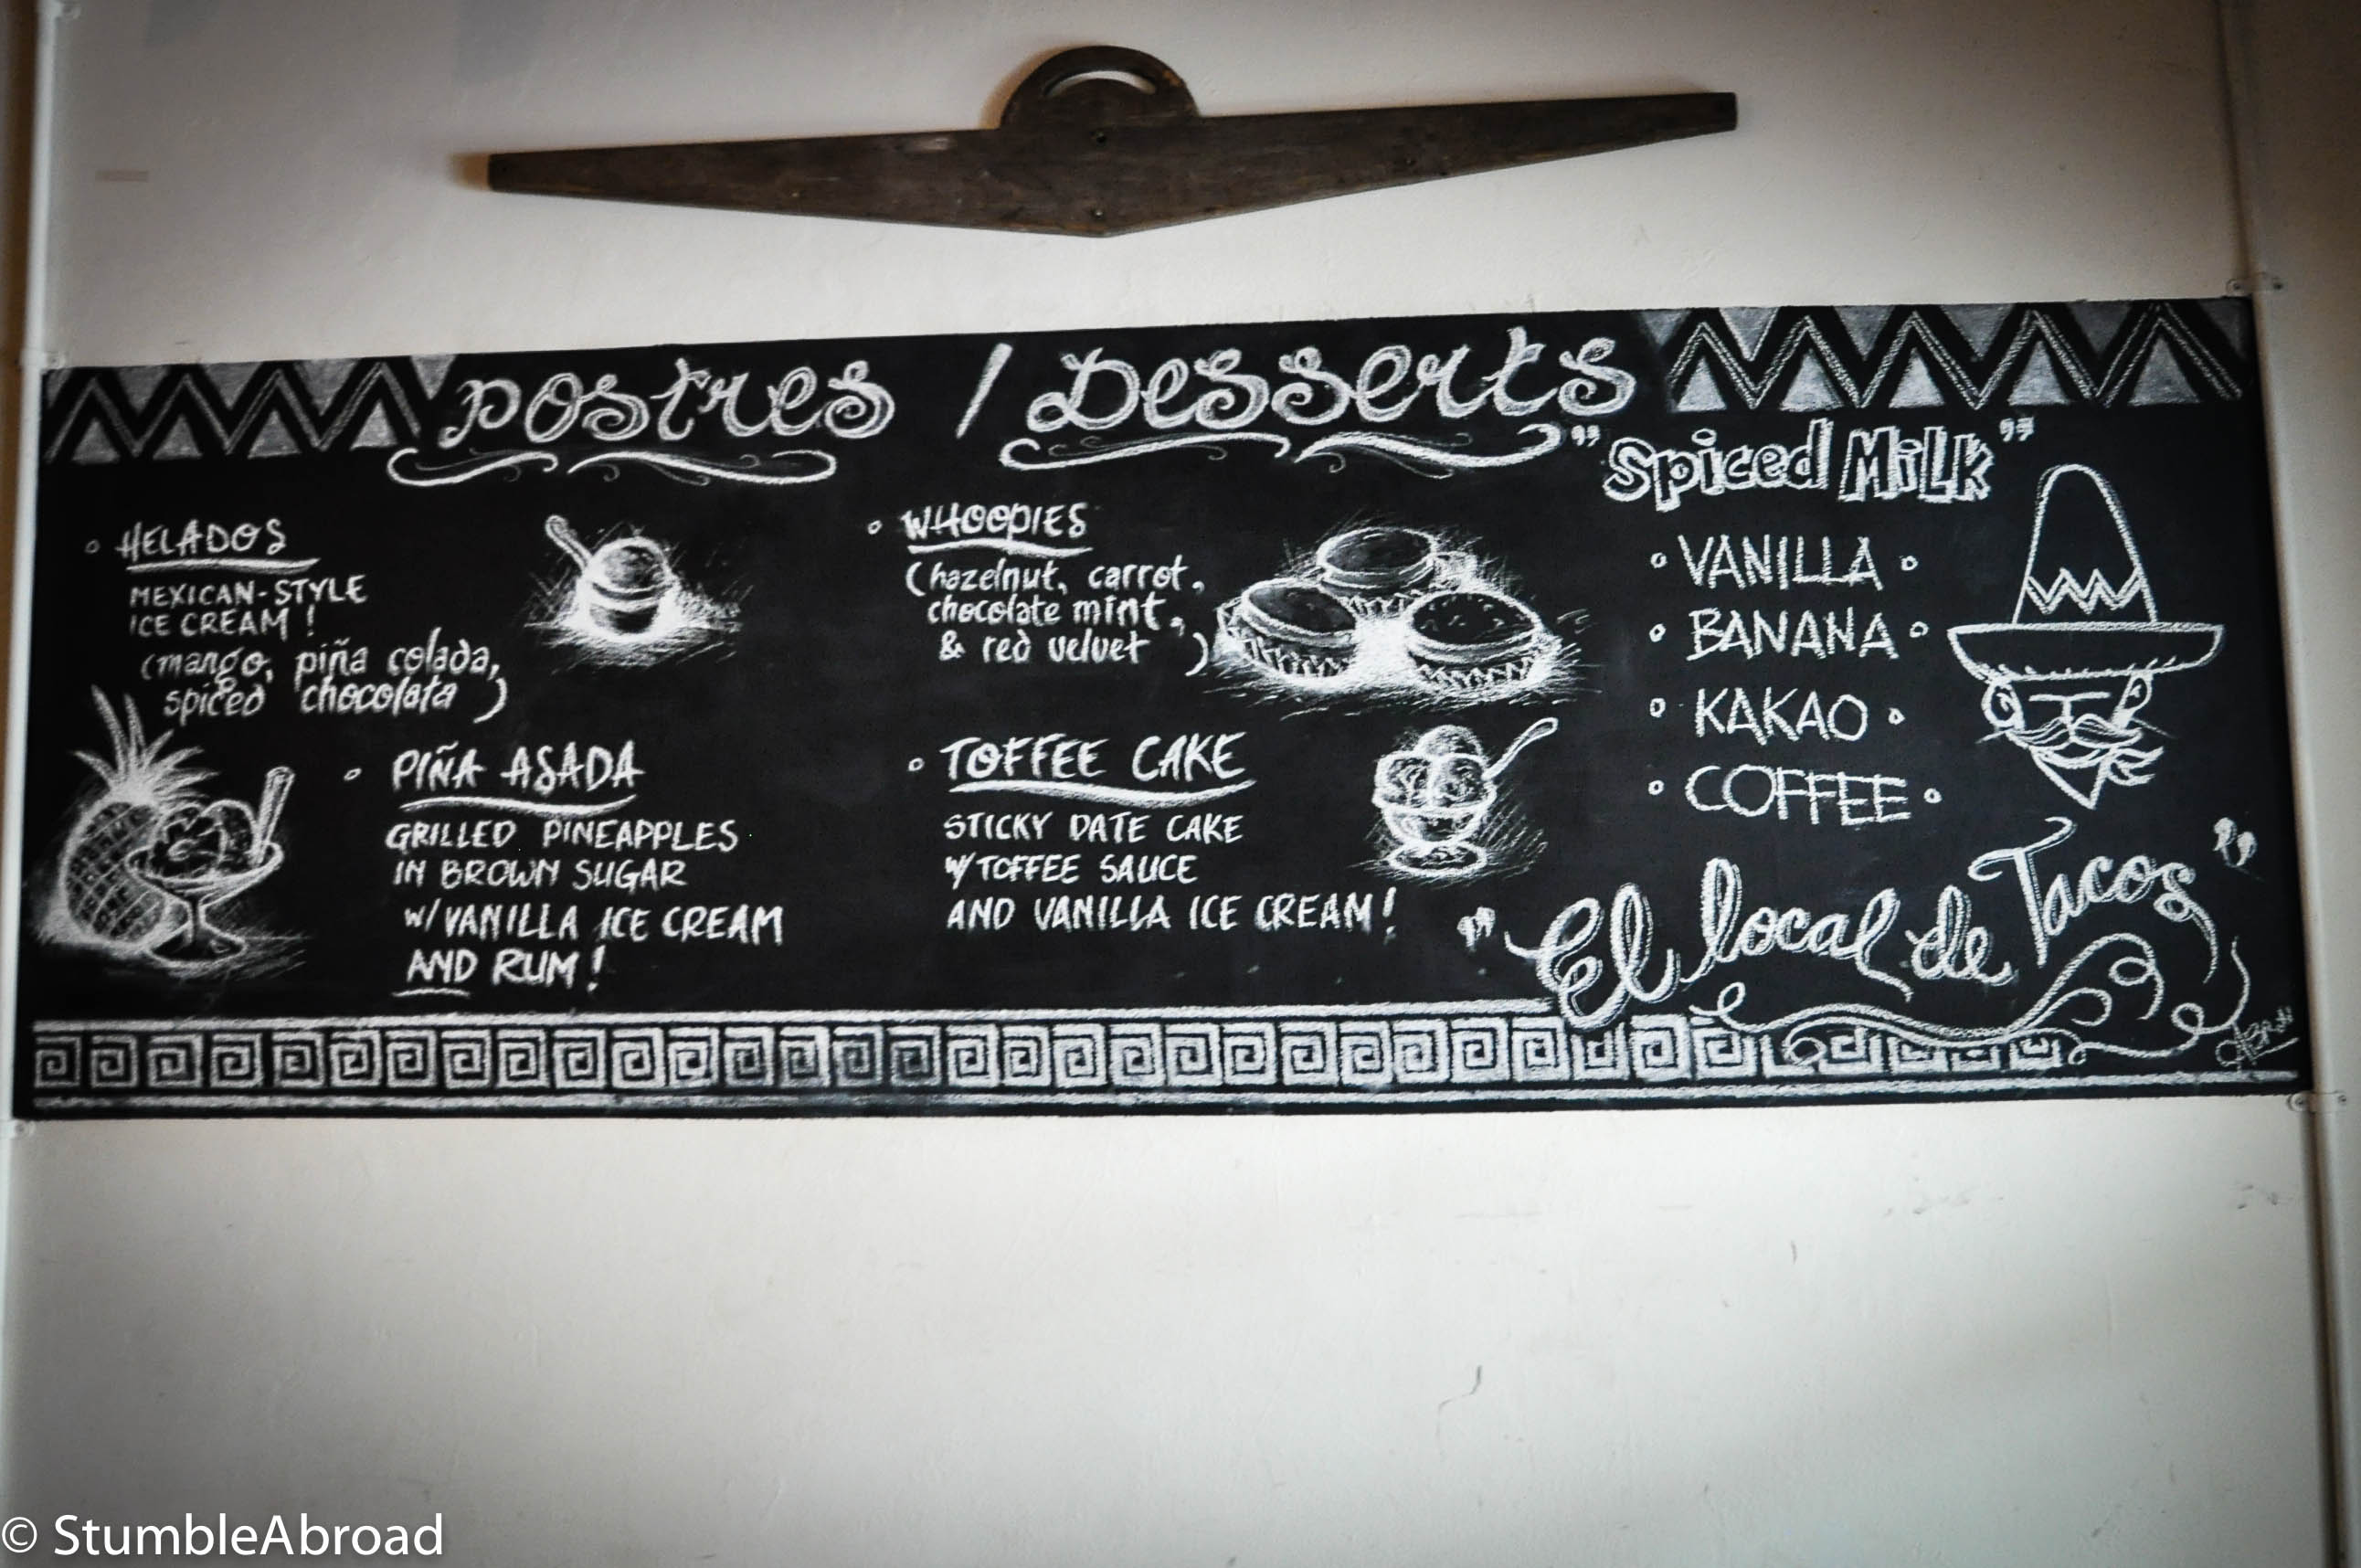 Postres / Desserts
HELADOS
MEXICAN-STYLE
ICE CREAM!
(mango, piña colada,
spiced chocolata)
PIÑA ASADA
GRILLED PINEAPPLES
IN BROWN SUGAR
W/VANILLA ICE CREAM
AND RUM!
WHOOPIES
(hazelnut, carrot,
chocolate mint,
& red velvet)
TOFFEE CAKE
STICKY DATE CAKE
W/TOFFEE SAUCE
AND VANILLA ICE CREAM!
"Spiced Milk"
VANILLA
BANANA
KAKAO
COFFEE
"El local de Tacos"
© StumbleAbroad